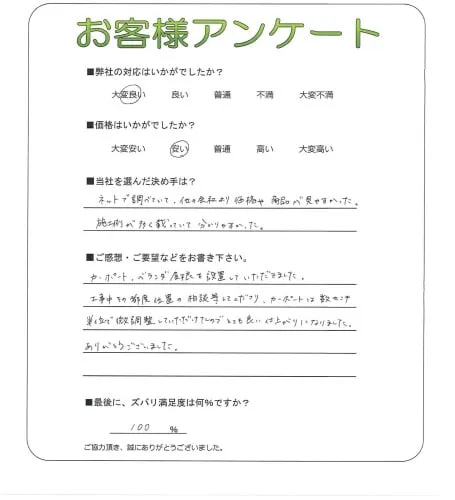 お客様アンケート
■弊社の対応はいかがでしたか？
大変良い 良い 普通 不満 大変不満
■価格はいかがでしたか？
大変安い 安い 普通 高い 大変高い
■当社を選んだ決め手は？
ネットで調べていて、他の会社より価格や商品が見やすかった。
施工例が多く載っていて分かりやすかった。
■ご感想・ご要望などをお書き下さい。
カーポート、ベランダ屋根を設置していただきました。
工事中その都度位置の相談等して下さり、カーポートは数センチ
単位で微調整していただけたのでとても良い仕上がりになりました。
ありがとうございました。
■最後に、ズバリ満足度は何%ですか？
100 %
ご協力頂き、誠にありがとうございました。